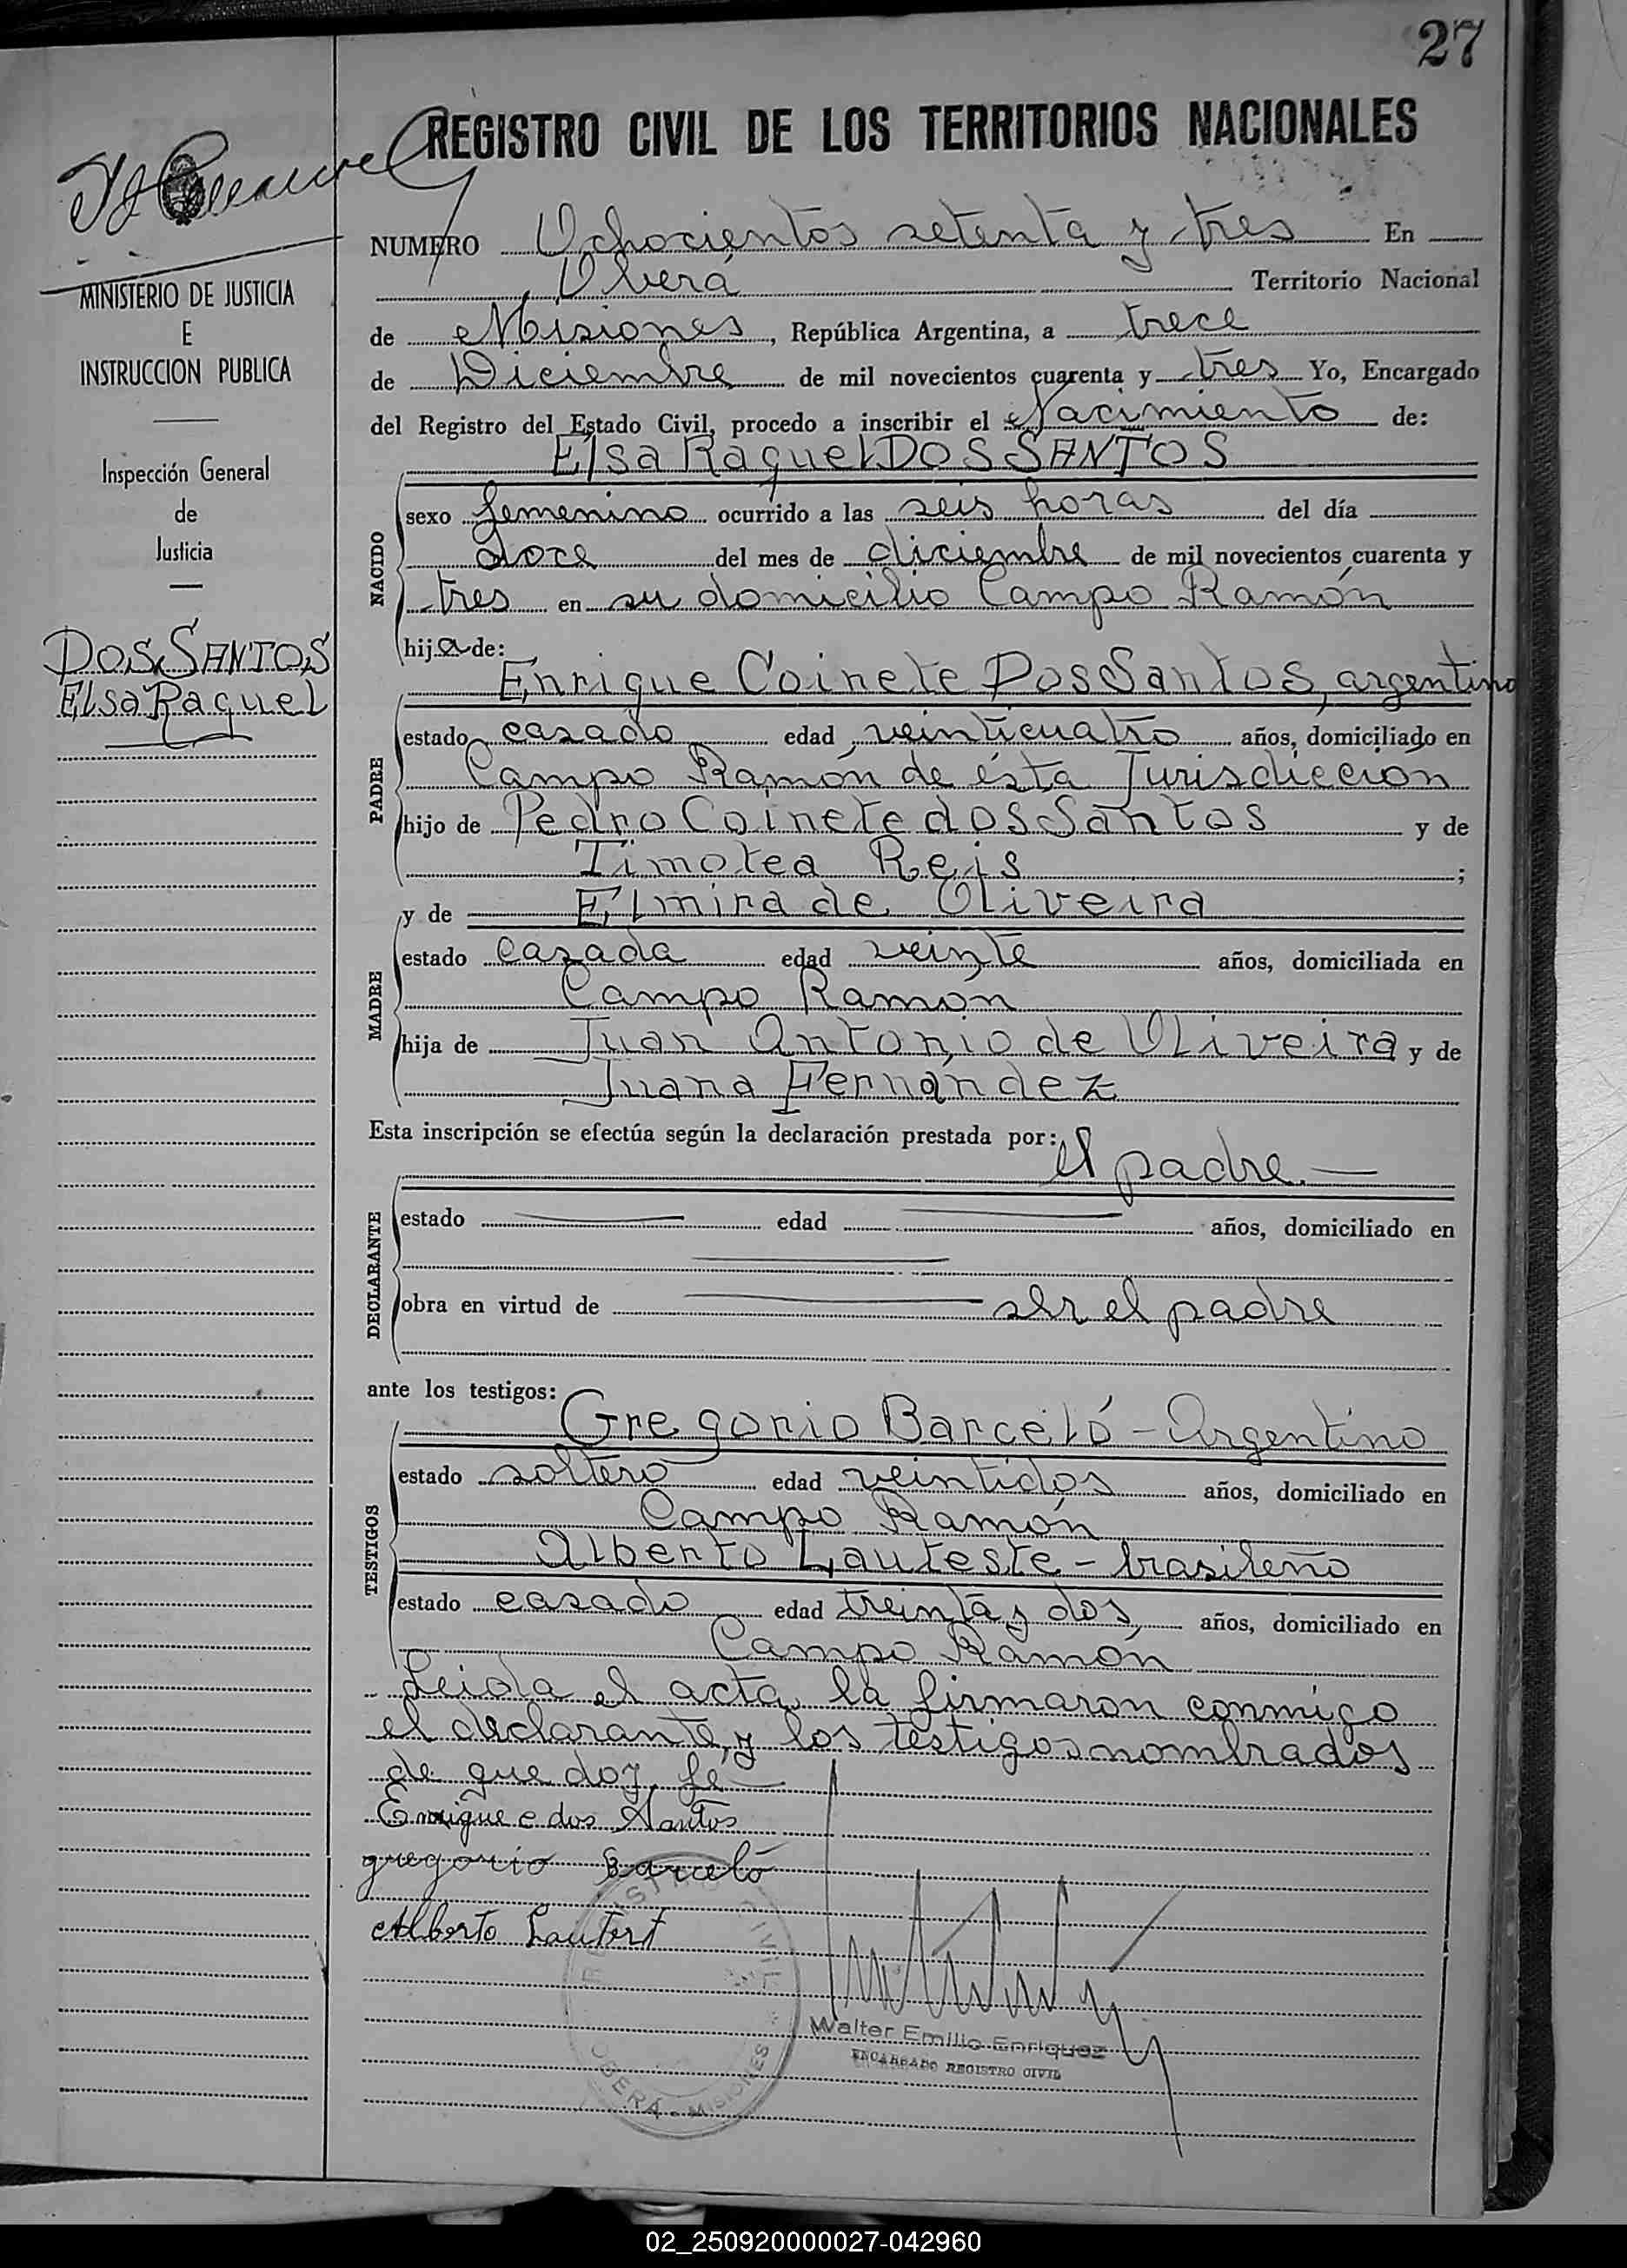 27
REGISTRO CIVIL DE LOS TERRITORIOS NACIONALES
MINISTERIO DE JUSTICIA
E
INSTRUCCION PUBLICA
Inspección General
de
Justicia
DOS SANTOS
Elsa Raquel
NUMERO Ochocientos setenta y tres En
Oberá Territorio Nacional
de Misiones, República Argentina, a trece
de Diciembre de mil novecientos cuarenta y tres Yo, Encargado
del Registro del Estado Civil, procedo a inscribir el Nacimiento de:
Elsa Raquel DOS SANTOS
NACIDO
sexo femenino ocurrido a las seis horas del día
doce del mes de diciembre de mil novecientos cuarenta y
tres en su domicilio Campo Ramón
hija de:
Enrique Coinete Dos Santos, argentino
PADRE
estado casado edad veinticuatro años, domiciliado en
Campo Ramón de ésta Jurisdicción
hijo de Pedro Coinete dos Santos y de
Timotea Reis ;
y de Elmira de Oliveira
MADRE
estado casada edad veinte años, domiciliada en
Campo Ramón
hija de Juan Antonio de Oliveira y de
Juana Fernández
Esta inscripción se efectúa según la declaración prestada por:
el padre
DECLARANTE
estado edad años, domiciliado en
obra en virtud de ser el padre
ante los testigos:
Gregorio Barceló - Argentino
TESTIGOS
estado soltero edad veintidos años, domiciliado en
Campo Ramón
Alberto Lauteste - brasileño
estado casado edad treinta y dos años, domiciliado en
Campo Ramón
Leida el acta, la firmaron conmigo
el declarante y los testigos nombrados
de que doy fé
Enrique c dos Santos
gregorio Barceló
Alberto Lautert
REGISTRO CIVIL
OBERA - MISIONES
Walter Emilio Enriquez
ENCARGADO REGISTRO CIVIL
02_250920000027-042960